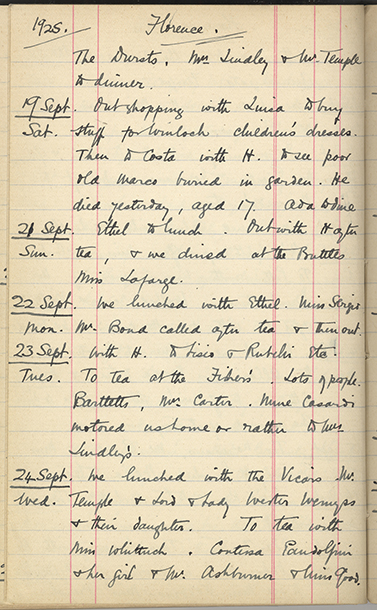 1925. Florence.
The Dursts, Mrs Lindley & Mr Temple
to dinner.
19 Sept. Out shopping with Luisa to buy
Sat. stuff for Winloch children's dresses.
Then to Costa with H. to see poor
old Marco buried in garden. He
died yesterday, aged 17. Ada to dine
21 Sept. Ethel to lunch. Out with H after
Sun. tea, & we dined at the
Miss Lafarge.
22 Sept. We lunched with Ethel. Miss
Mon. Mr. Bond called after tea & then out
23 Sept. with H. to & Etc.
Tues. To tea at the Fisher's. Lots of people.
Bartletts, Mrs Carter. Mme Casardi
motored us home or rather to Mrs
Lindley's.
24 Sept. We lunched with the Vicars Mr.
Wed. Temple & Lord & Lady Wester Wemyss
& their daughter. To tea with
Miss Whittuck. Contessa Pandolfini
& her girl & Mr. Ashburner & Miss Good.